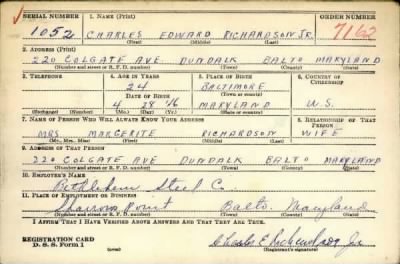 SERIAL NUMBER 1. NAME (Print) ORDER NUMBER
1052 CHARLES EDWARD RICHARDSON JR. 7162
(First) (Middle) (Last)
2. ADDRESS (Print)
220 COLGATE AVE DUNDALK BALTO MARYLAND
(Number and street or R. F. D. number) (Town) (County) (State)
3. TELEPHONE 4. AGE IN YEARS 5. PLACE OF BIRTH 6. COUNTRY OF CITIZENSHIP
24 BALTIMORE
DATE OF BIRTH (Town or county)
4 28 '16 MARYLAND U.S.
(Exchange) (Number) (Mo.) (Day) (Yr.) (State or country)
7. NAME OF PERSON WHO WILL ALWAYS KNOW YOUR ADDRESS 8. RELATIONSHIP OF THAT PERSON
MRS MARGERITE RICHARDSON WIFE
(Mr., Mrs., Miss) (First) (Middle) (Last)
9. ADDRESS OF THAT PERSON
220 COLGATE AVE DUNDALK BALTO MARYLAND
(Number and street or R. F. D. number) (Town) (County) (State)
10. EMPLOYER'S NAME
Bethlehem Steel Co.
11. PLACE OF EMPLOYMENT OR BUSINESS
Sparrows Point Balto. Maryland
(Number and street or R. F. D. number) (Town) (County) (State)
I AFFIRM THAT I HAVE VERIFIED ABOVE ANSWERS AND THAT THEY ARE TRUE.
REGISTRATION CARD
D. S. S. FORM 1 Charles E Richardson Jr.